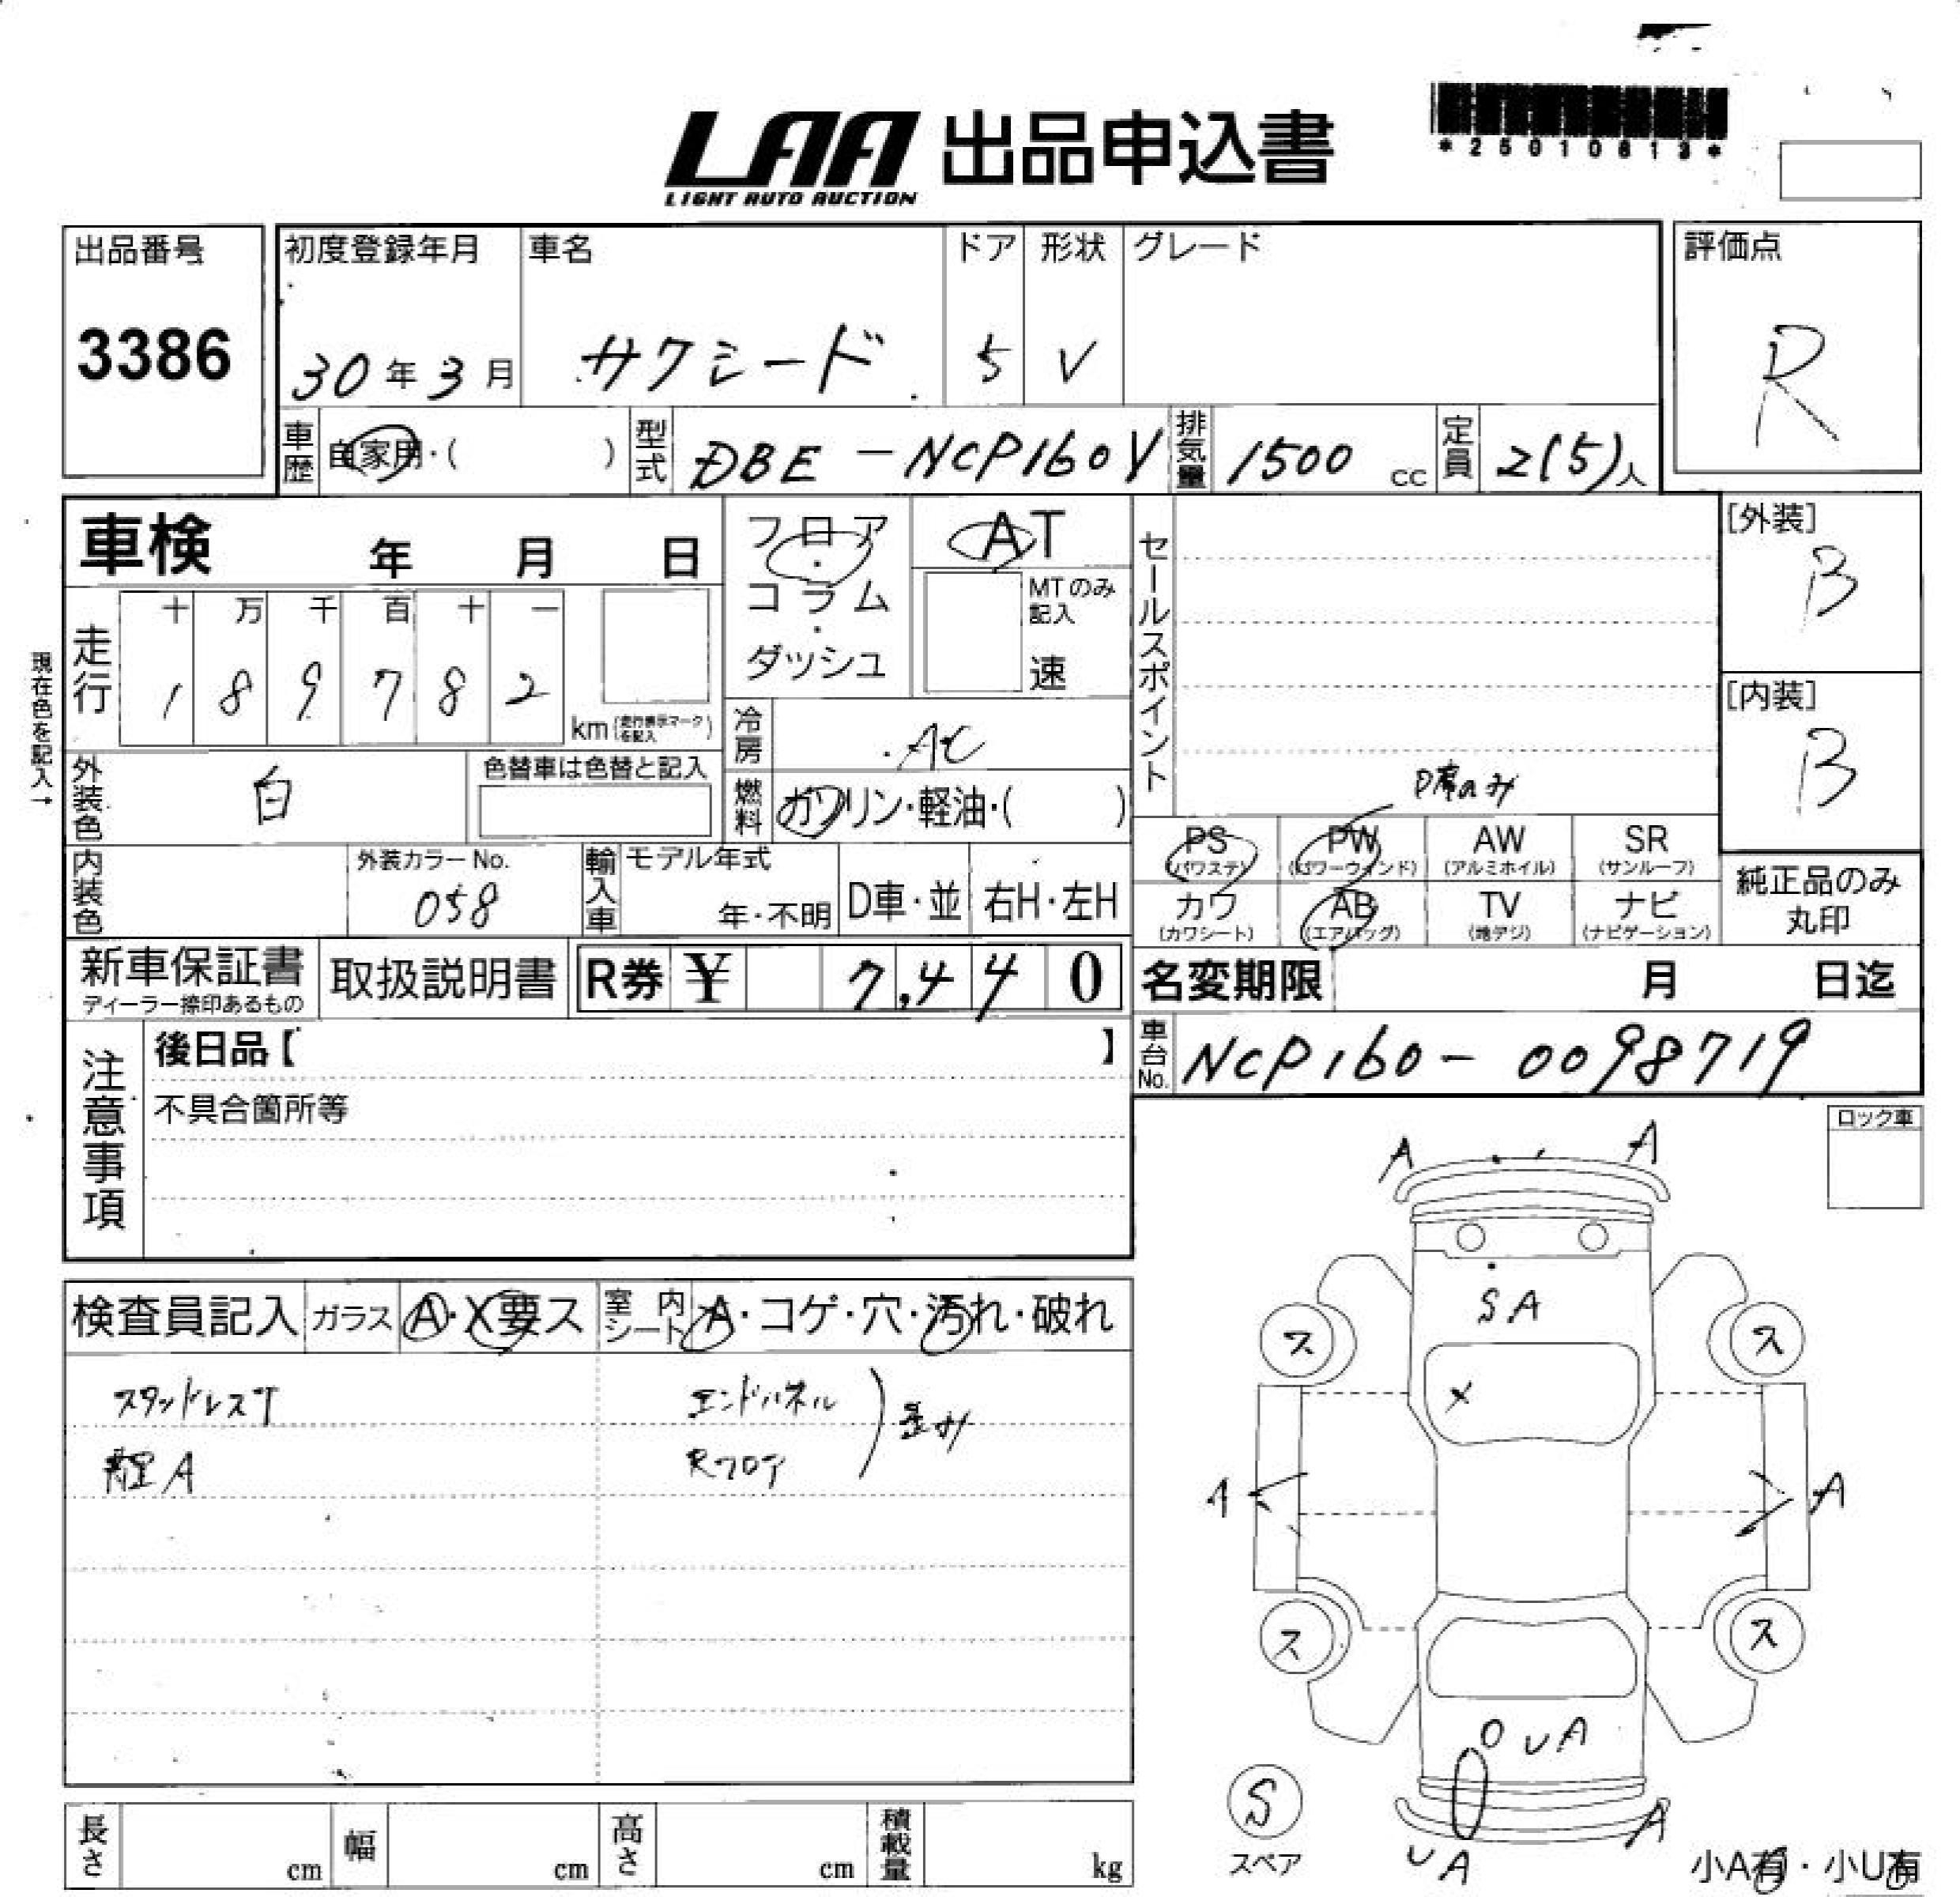 LAA 出品申込書
LIGHT AUTO AUCTION
*25010613*
出品番号
3386
初度登録年月
30年3月
車名
サクシード
ドア
5
形状
V
グレード
評価点
R
車歴
自家用・( )
型式
DBE-NCP160V
排気量
1500 cc
定員
2(5)人
車検 年 月 日
フロア・コラム・ダッシュ
AT
MTのみ記入
速
セールスポイント
P席のみ
[外装]
B
[内装]
B
現在色を記入→
走行
十 万 千 百 十 一
1 8 9 7 8 2
km(走行表示マークを記入)
冷房
AC
外装色
白
色替車は色替と記入
燃料
ガソリン・軽油・( )
PS
(パワステ)
PW
(パワーウインド)
AW
(アルミホイル)
SR
(サンルーフ)
カワ
(カワシート)
AB
(エアバッグ)
TV
(地デジ)
ナビ
(ナビゲーション)
純正品のみ
丸印
内装色
外装カラーNo.
058
輸入車
モデル年式
年・不明
D車・並
右H・左H
新車保証書
ディーラー捺印あるもの
取扱説明書
R券 ¥ 7,440
名変期限 月 日迄
車台No.
NCP160-0098719
注意事項
後日品【 】
不具合箇所等
ロック車
A A
SA
ス ス
X
A
ス ス
UA
S
スペア
UA A
小A有・小U有
検査員記入
ガラス
A・X要ス
室内シート
A・コゲ・穴・汚れ・破れ
スタッドレスT
エンドパネル
Rフロア
歪み
長さ cm
幅 cm
高さ cm
積載量 kg